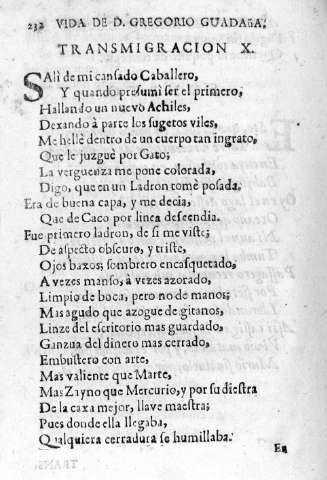 232 VIDA DE D. GREGORIO GUADAÑA.
TRANSMIGRACION X.
SAlì de mi cansado Caballero,
Y quando presumì ser el primero,
Hallando un nuevo Achiles,
Dexando à parte los sugetos viles,
Me hellè dentro de un cuerpo tan ingrato,
Que le juzguè por Gato;
La verguenza me pone colorada,
Digo, que en un Ladron tomè posada.
Era de buena capa, y me decia,
Que de Caco por linea descendia.
Fue primero ladron, de si me viste;
De aspecto obscuro, y triste,
Ojos baxos; sombrero encasquetado,
A vezes manso, à vezes azorado,
Limpio de boca, pero no de manos;
Mas agudo que azogue de gitanos,
Linze del escritorio mas guardado,
Ganzua del dinero mas cerrado,
Embustero con arte,
Mas valiente que Marte,
Mas Zayno que Mercurio, y por su diestra
De la caxa mejor, llave maestra;
Pues donde ella llegaba,
Qualquiera cerradura se humillaba.
En